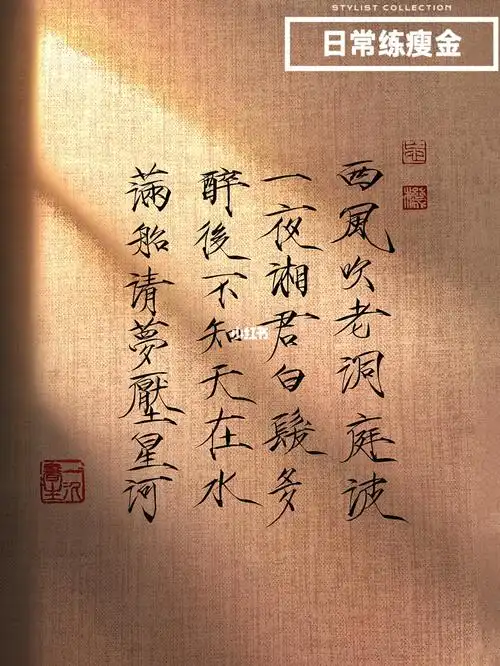 STYLIST COLLECTION
日常练瘦金
西風吹老洞庭波
一夜湘君白髮多
醉後不知天在水
滿船清夢壓星河
小红书